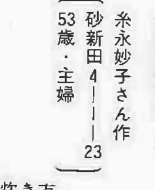 糸永妙子さん作
砂新田4―1―23
53歳・主婦
炊き方